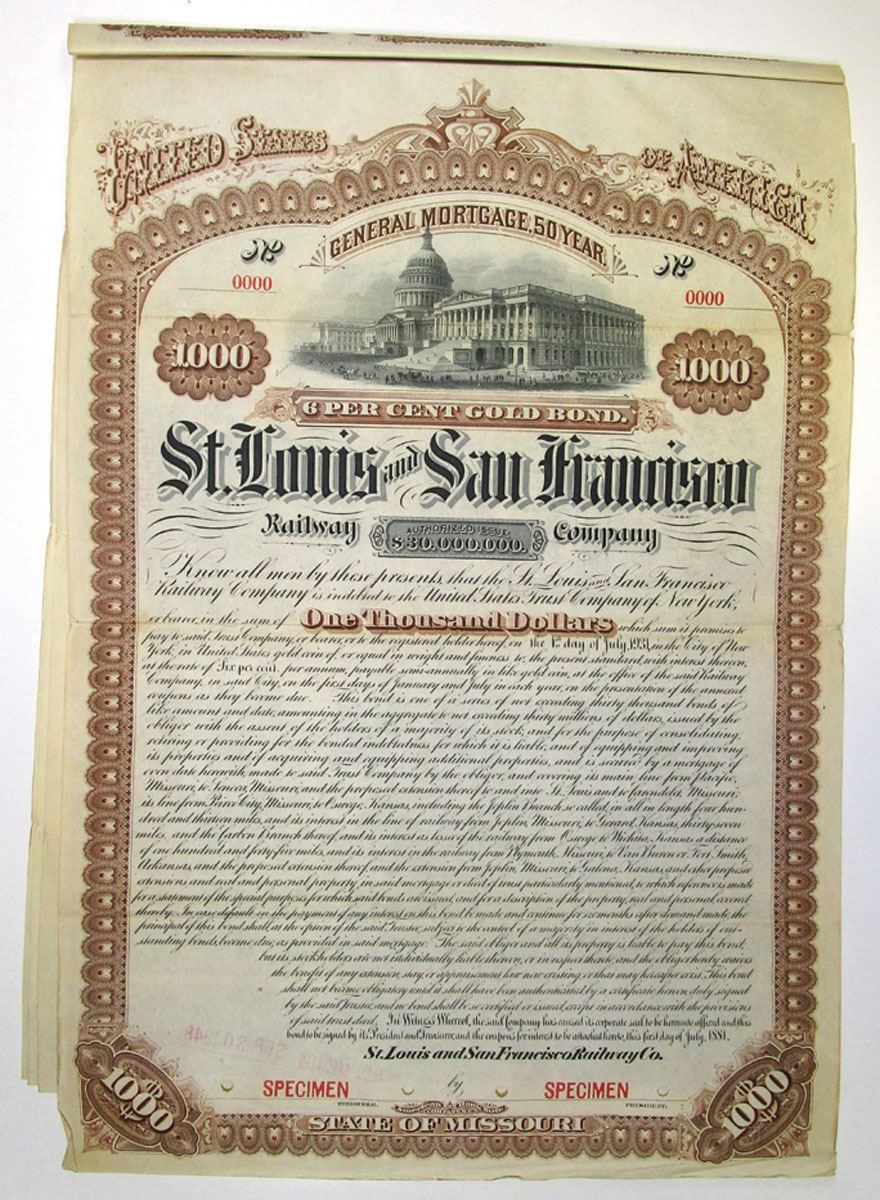 UNITED STATES OF AMERICA.
GENERAL MORTGAGE, 50 YEAR.
No 0000
No 0000
1.000
1.000
6 PER CENT GOLD BOND.
St. Louis and San Francisco
Railway Company
AUTHORIZED ISSUE
$30,000,000.
Know all men by these presents, that the St. Louis and San Francisco
Railway Company is indebted to the United States Trust Company of New York,
or bearer, in the sum of One Thousand Dollars which sum it promises to
pay to said Trust Company, or bearer, or to the registered holder hereof, on the 1st day of July, 1931, in the City of New
York, in United States gold coin of, or equal in weight and fineness to, the present standard, with interest thereon,
at the rate of Six per cent. per annum, payable semi-annually in like gold coin, at the office of the said Railway
Company, in said City, on the first days of January and July in each year, on the presentation of the annexed
coupons as they become due. This bond is one of a series of not exceeding thirty thousand bonds of
like amount and date, amounting in the aggregate to not exceeding thirty millions of dollars, issued by the
obligor with the assent of the holders of a majority of its stock, and for the purpose of consolidating,
retiring or providing for the bonded indebtedness for which it is liable, and of equipping and improving
its properties and of acquiring and equipping additional properties, and is secured by a mortgage of
even date herewith, made to said Trust Company by the obligor, and covering its main line from Pacific,
Missouri, to Seneca, Missouri, and the proposed extension thereof to and into St. Louis and to Carondelet, Missouri;
its line from Peirce City, Missouri, to Oswego, Kansas, including the Joplin Branch so called, in all in length four hun-
dred and thirteen miles, and its interest in the line of railway from Joplin, Missouri, to Girard, Kansas, thirty-seven
miles, and the Carbon Branch thereof, and its interest as lessee of the railway from Oswego to Wichita, Kansas, a distance
of one hundred and forty-five miles, and its interest in the railway from Plymouth, Missouri, to Van Buren or Fort Smith,
Arkansas, and the proposed extension thereof, and the extension from Joplin, Missouri, to Galena, Kansas, and other proposed
extensions and real and personal property, in said mortgage or deed of trust particularly mentioned, to which reference is made
for a statement of the special purposes for which said bonds are issued, and for a description of the property, real and personal covered
thereby. In case default in the payment of any interest on this bond be made and continue for six months after demand made, the
principal of this bond shall, at the option of the said Trustee, subject to the control of a majority in interest of the holders of out-
standing bonds, become due, as provided in said mortgage. The said obligor and all its property is liable to pay this bond,
but its stockholders are not individually liable thereon, or in respect thereto, and the obligor hereby waives
the benefit of any extension, stay, or appraisement law now existing, or that may hereafter exist. This bond
shall not become obligatory until it shall have been authenticated by a certificate hereon, duly signed
by the said Trustee, and no bond shall be so certified or issued, except in accordance with the provisions
of said trust deed. In Witness Whereof, the said Company has caused its corporate seal to be hereunto affixed and this
bond to be signed by its President and Treasurer, and the coupons for interest to be attached hereto, this first day of July, 1881.
St. Louis and San Francisco Railway Co.
SPECIMEN by SPECIMEN
TREASURER. PRESIDENT.
$1000
$1000
STATE OF MISSOURI